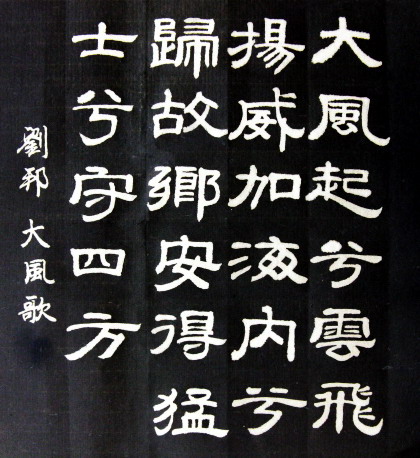 大風起兮雲飛
揚威加海內兮
歸故鄉安得猛
士兮守四方
劉邦大風歌